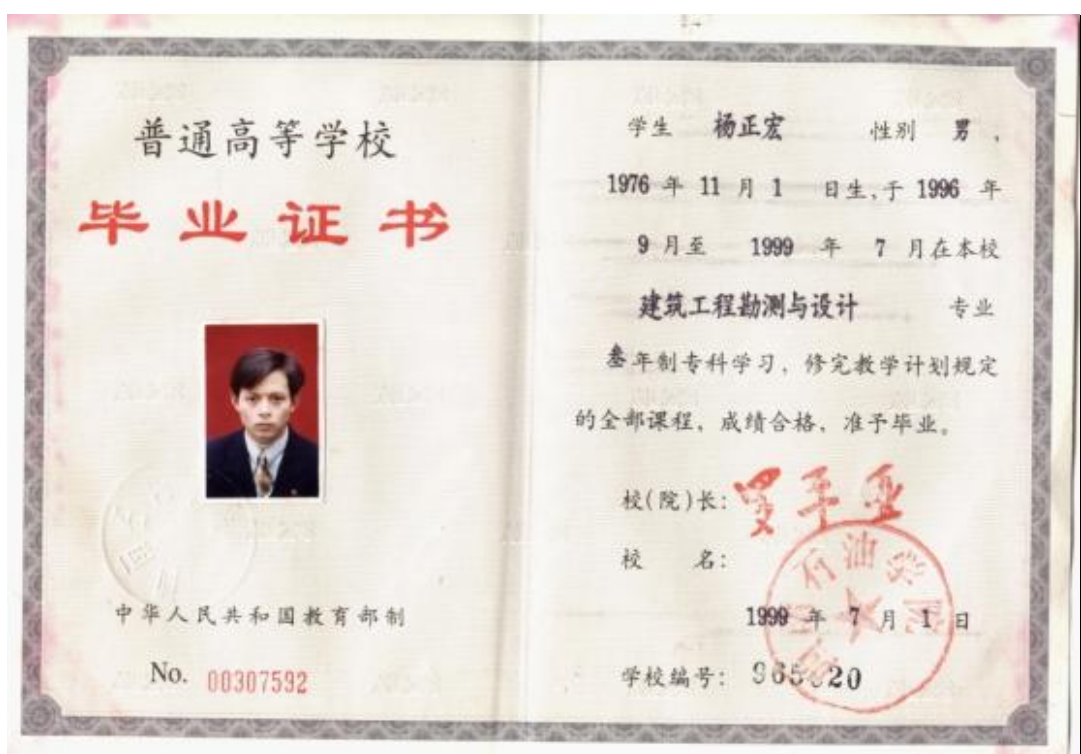 普通高等学校
毕业证书
中华人民共和国教育部制
No. 00307592
学生 杨正宏 性别 男 ,
1976 年 11 月 1 日生,于 1996 年
9 月至 1999 年 7 月在本校
建筑工程勘测与设计 专业
叁年制专科学习，修完教学计划规定
的全部课程，成绩合格，准予毕业。
校(院)长: 罗平亚
校 名:
石油学院
1999 年 7 月 1 日
学校编号: